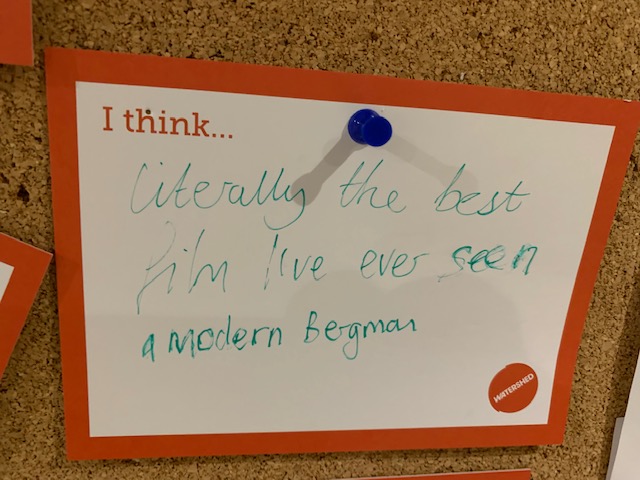 I think...
Literally the best
film I've ever seen
a modern Bergman
WATERSHED